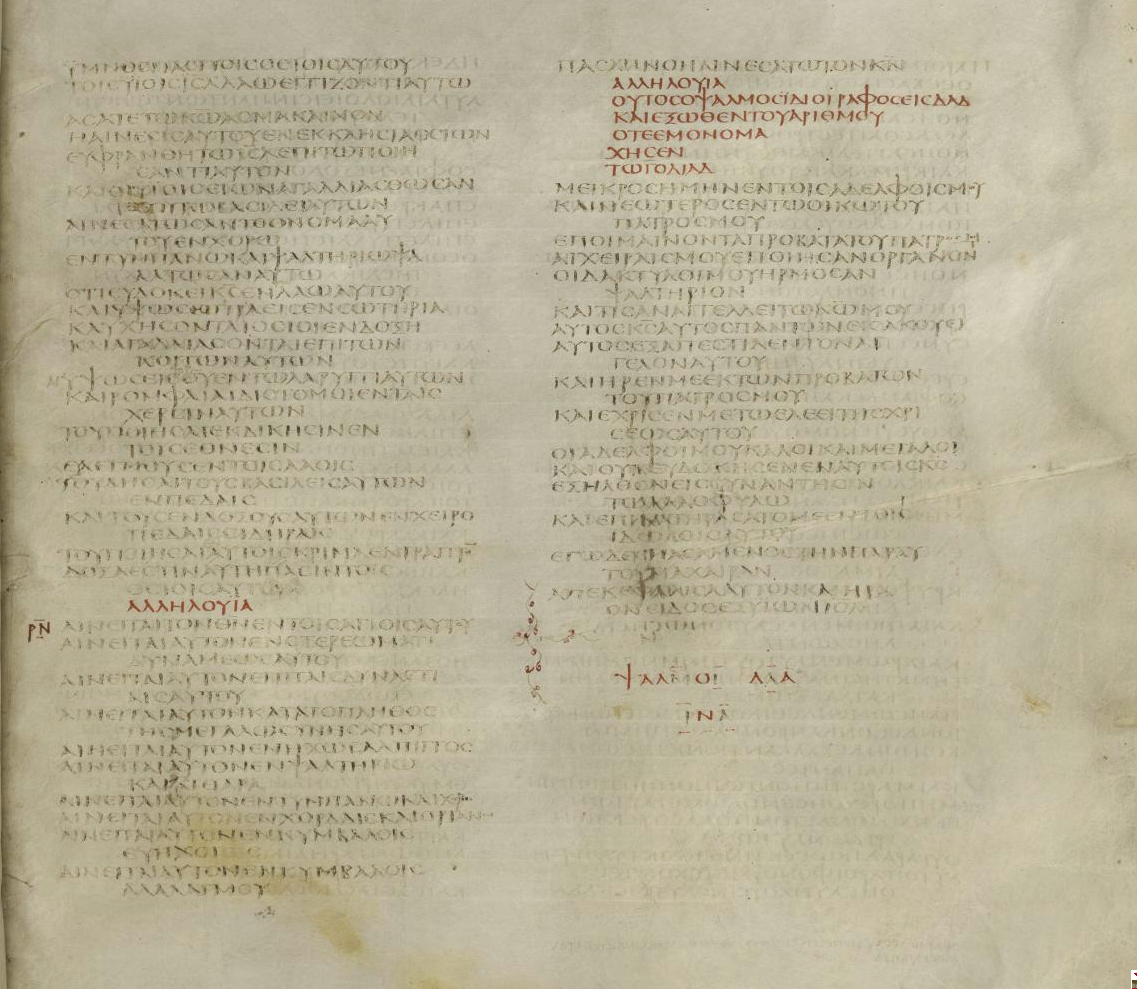 ΥΜΝΟϹΠΑϹΙΤΟΙϹΟϹΙΟΙϹΑΥΤΟΥ
ΤΟΙϹΥΙΟΙϹΙϹΛΛΑΩΕΓΓΙΖΟΝΤΙΑΥΤΩ
ΑϹΑΤΕΤΩΚΩΑϹΜΑΚΑΙΝΟΝ
ΗΑΙΝΕϹΙϹΑΥΤΟΥΕΝΕΚΚΛΗϹΙΑΟϹΙΩΝ
ΕΥΦΡΑΝΘΗΤΩΙϹΛΕΠΙΤΩΠΟΙΗ
ϹΑΝΤΙΑΥΤΟΝ
ΚΑΙΟΙΥΙΟΙϹΙΩΝΑΓΑΛΛΙΑϹΘΩϹΑΝ
ΕΠΙΤΩΒΑϹΙΛΕΙΑΥΤΩΝ
ΑΙΝΕϹΑΤΩϹΑΝΤΟΟΝΟΜΑΑΥ
ΤΟΥΕΝΧΟΡΩ
ΕΝΤΥΝΠΑΝΩΚΑΙΨΑΛΤΗΡΙΩΨΑ
ΛΑΤΩϹΑΝΑΥΤΩ
ΟΤΙΕΥΔΟΚΕΙΚϹΕΝΛΑΩΑΥΤΟΥ
ΚΑΙΥΨΩϹΕΙΠΡΑΕΙϹΕΝϹΩΤΗΡΙΑ
ΚΑΥΧΗϹΟΝΤΑΙΟϹΙΟΙΕΝΔΟΞΗ
ΚΑΙΑΓΑΛΛΙΑϹΟΝΤΑΙΕΠΙΤΩΝ
ΚΟΙΤΩΝΑΥΤΩΝ
ΑΙΥΨΩϹΕΙϹΤΟΥΘΥΕΝΤΩΛΑΡΥΓΓΙΑΥΤΩΝ
ΚΑΙΡΟΜΦΑΙΑΙΔΙϹΤΟΜΟΙΕΝΤΑΙϹ
ΧΕΡϹΙΝΑΥΤΩΝ
ΤΟΥΠΟΙΗϹΑΙΕΚΔΙΚΗϹΙΝΕΝ
ΤΟΙϹΕΘΝΕϹΙΝ
ΕΛΕΓΜΟΥϹΕΝΤΟΙϹΛΑΟΙϹ
ΤΟΥΔΗϹΑΙΤΟΥϹΒΑϹΙΛΕΙϹΑΥΤΩΝ
ΕΝΠΕΔΑΙϹ
ΚΑΙΤΟΥϹΕΝΔΟΞΟΥϹΑΥΤΩΝΕΝΧΕΙΡΟ
ΠΕΔΑΙϹϹΙΔΗΡΑΙϹ
ΤΟΥΠΟΙΗϹΑΙΑΥΤΟΙϹΚΡΙΜΑΕΝΓΡΑΠΤΟ
ΔΟΞΑΕϹΤΙΝΑΥΤΗΠΑϹΙΝΤΟΙϹ
ΟϹΙΟΙϹΑΥΤΟΥ
ΑΛΛΗΛΟΥΙΑ
ΡΝ ΑΙΝΕΙΤΑΙΤΟΝΘΝΕΝΤΟΙϹΑΓΙΟΙϹΑΥΤΟΥ
ΑΙΝΕΙΤΑΙΑΥΤΟΝΕΝϹΤΕΡΕΩΜΑΤΙ
ΔΥΝΑΜΕΩϹΑΥΤΟΥ
ΑΙΝΕΙΤΑΙΑΥΤΟΝΕΠΙΤΑΙϹΔΥΝΑϹΤΙ
ΑΙϹΑΥΤΟΥ
ΑΙΝΕΙΤΑΙΑΥΤΟΝΚΑΤΑΤΟΠΛΗΘΟϹ
ΤΗϹΜΕΓΑΛΩϹΥΝΗϹΑΥΤΟΥ
ΑΙΝΕΙΤΑΙΑΥΤΟΝΕΝΗΧΩϹΑΛΠΙΓΓΟϹ
ΑΙΝΕΙΤΑΙΑΥΤΟΝΕΝΨΑΛΤΗΡΙΩ
ΚΑΙΚΙΘΑΡΑ
ΑΙΝΕΙΤΑΙΑΥΤΟΝΕΝΤΥΝΠΑΝΩΚΑΙΧΟΡΩ
ΑΙΝΕΙΤΑΙΑΥΤΟΝΕΝΧΟΡΔΑΙϹΚΑΙΟΡΓΑΝΩ
ΑΙΝΕΙΤΑΙΑΥΤΟΝΕΝΚΥΜΒΑΛΟΙϹ
ΕΥΗΧΟΙϹ
ΑΙΝΕΙΤΑΙΑΥΤΟΝΕΝΚΥΜΒΑΛΟΙϹ
ΑΛΑΛΑΓΜΟΥ
ΠΑϹΑΠΝΟΗΑΙΝΕϹΑΤΩΤΟΝΚΝ
ΑΛΛΗΛΟΥΙΑ
ΟΥΤΟϹΟΨΑΛΜΟϹΙΔΙΟΓΡΑΦΟϹΕΙϹΔΑΔ
ΚΑΙΕΞΩΘΕΝΤΟΥΑΡΙΘΜΟΥ
ΟΤΕΕΜΟΝΟΜΑ
ΧΗϹΕΝ
ΤΩΓΟΛΙΑΔ
ΜΕΙΚΡΟϹΗΜΗΝΕΝΤΟΙϹΑΔΕΛΦΟΙϹΜΟΥ
ΚΑΙΝΕΩΤΕΡΟϹΕΝΤΩΟΙΚΩΤΟΥ
ΠΑΤΡΟϹΜΟΥ
ΕΠΟΙΜΑΙΝΟΝΤΑΠΡΟΒΑΤΑΤΟΥΠΑΤΡΟϹΜΟΥ
ΑΙΧΕΙΡΑΙϹΜΟΥΕΠΟΙΗϹΑΝΟΡΓΑΝΟΝ
ΟΙΔΑΚΤΥΛΟΙΜΟΥΗΡΜΟϹΑΝ
ΨΑΛΤΗΡΙΟΝ
ΚΑΙΤΙϹΑΝΑΓΓΕΛΛΕΙΤΩΚΩΜΟΥ
ΑΥΤΟϹΚϹΑΥΤΟϹΠΑΝΤΩΝΕΙϹΑΚΟΥΕΙ
ΑΥΤΟϹΕΞΑΠΕϹΤΙΛΕΝΤΟΝΑΓ
ΓΕΛΟΝΑΥΤΟΥ
ΚΑΙΗΡΕΝΜΕΕΚΤΩΝΠΡΟΒΑΤΩΝ
ΤΟΥΠΑΤΡΟϹΜΟΥ
ΚΑΙΕΧΡΙϹΕΝΜΕΤΩΕΛΕΕΙΤΗϹΧΡΙ
ϹΕΩϹΑΥΤΟΥ
ΟΙΑΔΕΛΦΟΙΜΟΥΚΑΛΟΙΚΑΙΜΕΓΑΛΟΙ
ΚΑΙΟΥΚΕΥΔΟΚΗϹΕΝΕΝΑΥΤΟΙϹΚϹ
ΕΞΗΛΘΟΝΕΙϹϹΥΝΑΝΤΗϹΙΝ
ΤΩΑΛΛΟΦΥΛΩ
ΚΑΙΕΠΙΚΑΤΗΡΑϹΑΤΟΜΕΕΝΤΟΙϹ
ΙΔΩΛΟΙϹΑΥΤΟΥ
ΕΓΩΔΕϹΠΑϹΑΜΕΝΟϹΤΗΝΠΑΡΑΥ
ΤΟΥΜΑΧΑΙΡΑΝ
ΑΠΕΚΕΦΑΛΙϹΑΑΥΤΟΝΚΑΙΗΡΑ
ΟΝΕΙΔΟϹΕΞΥΙΩΝ
ΨΑΛΜΟΙ ΔΑΔ
ΡΝΑ